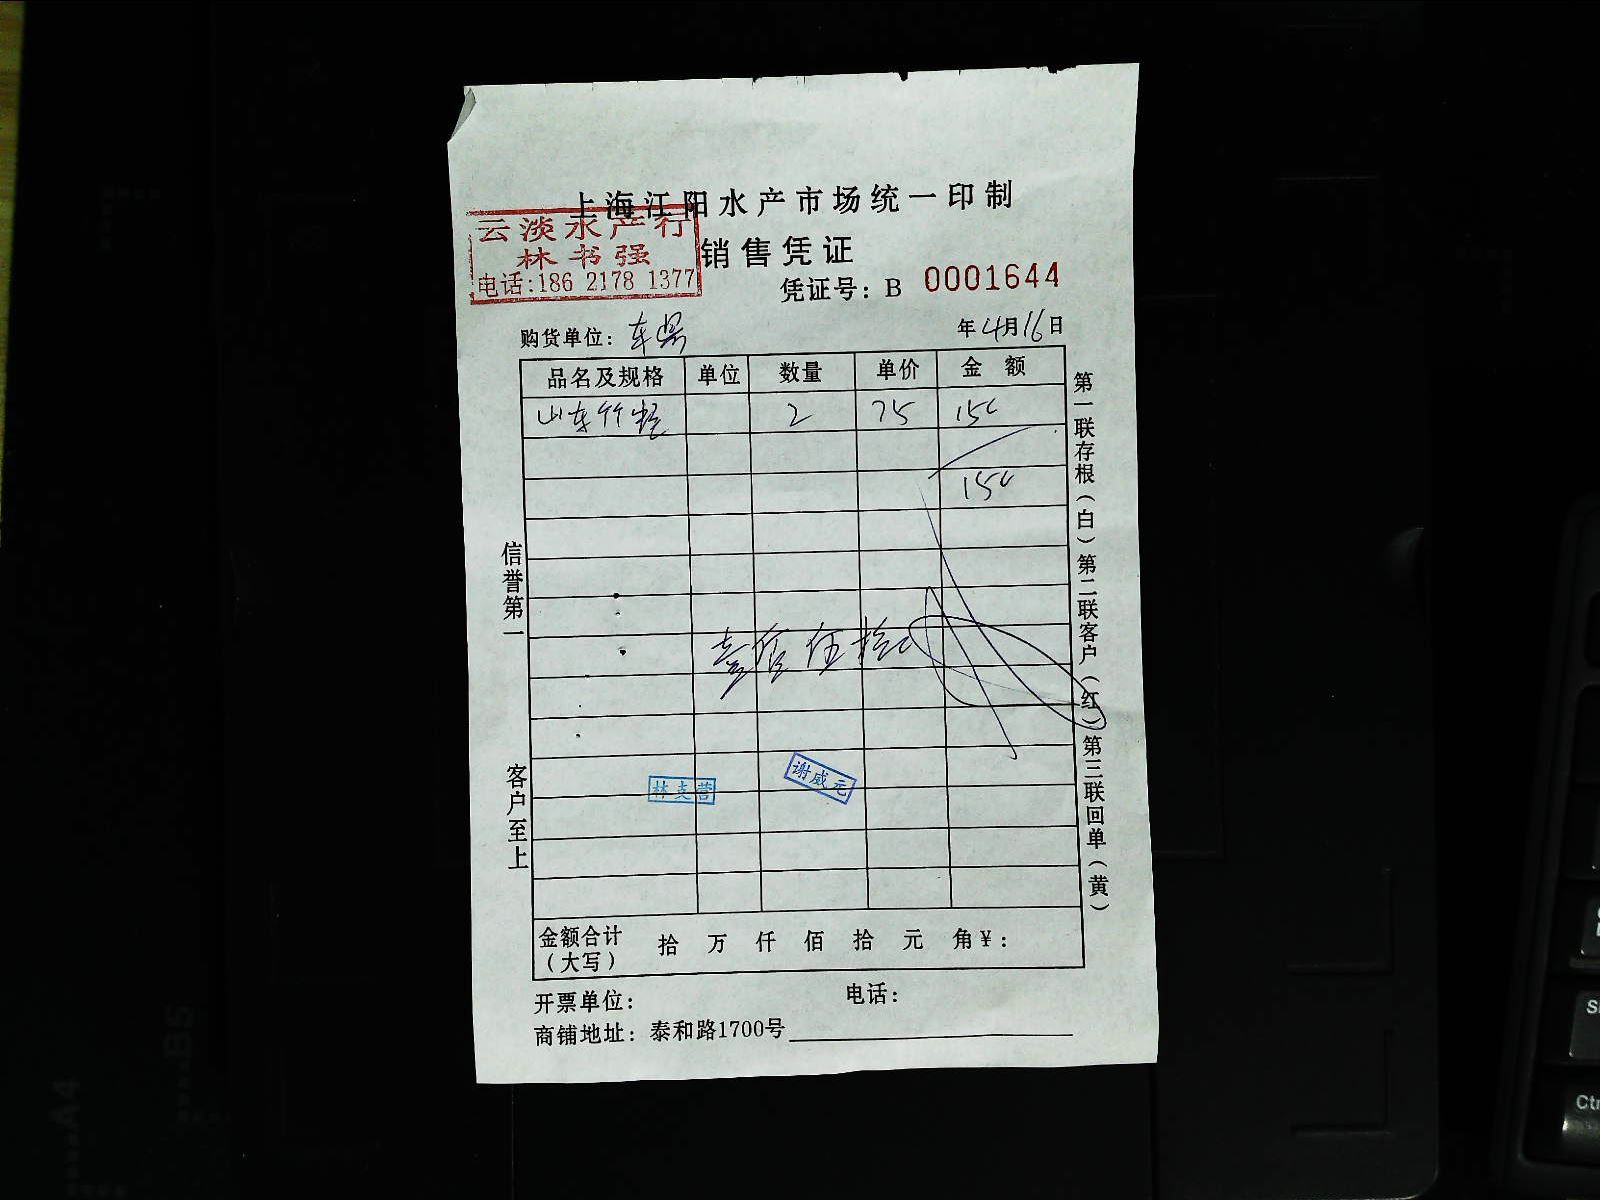 上海江阳水产市场统一印制
云淡水产行
林书强
电话:186 2178 1377
销售凭证
凭证号: B 0001644
购货单位:
年 4月16日
品名及规格 单位 数量 单价 金额
山东竹蛏 2 75 150
150
壹佰伍拾
信誉第一
客户至上
第一联存根(白)第二联客户(红)第三联回单(黄)
林支营
谢威元
金额合计(大写) 拾 万 仟 佰 拾 元 角¥:
开票单位: 电话:
商铺地址: 泰和路1700号
A4
B5
Ctr